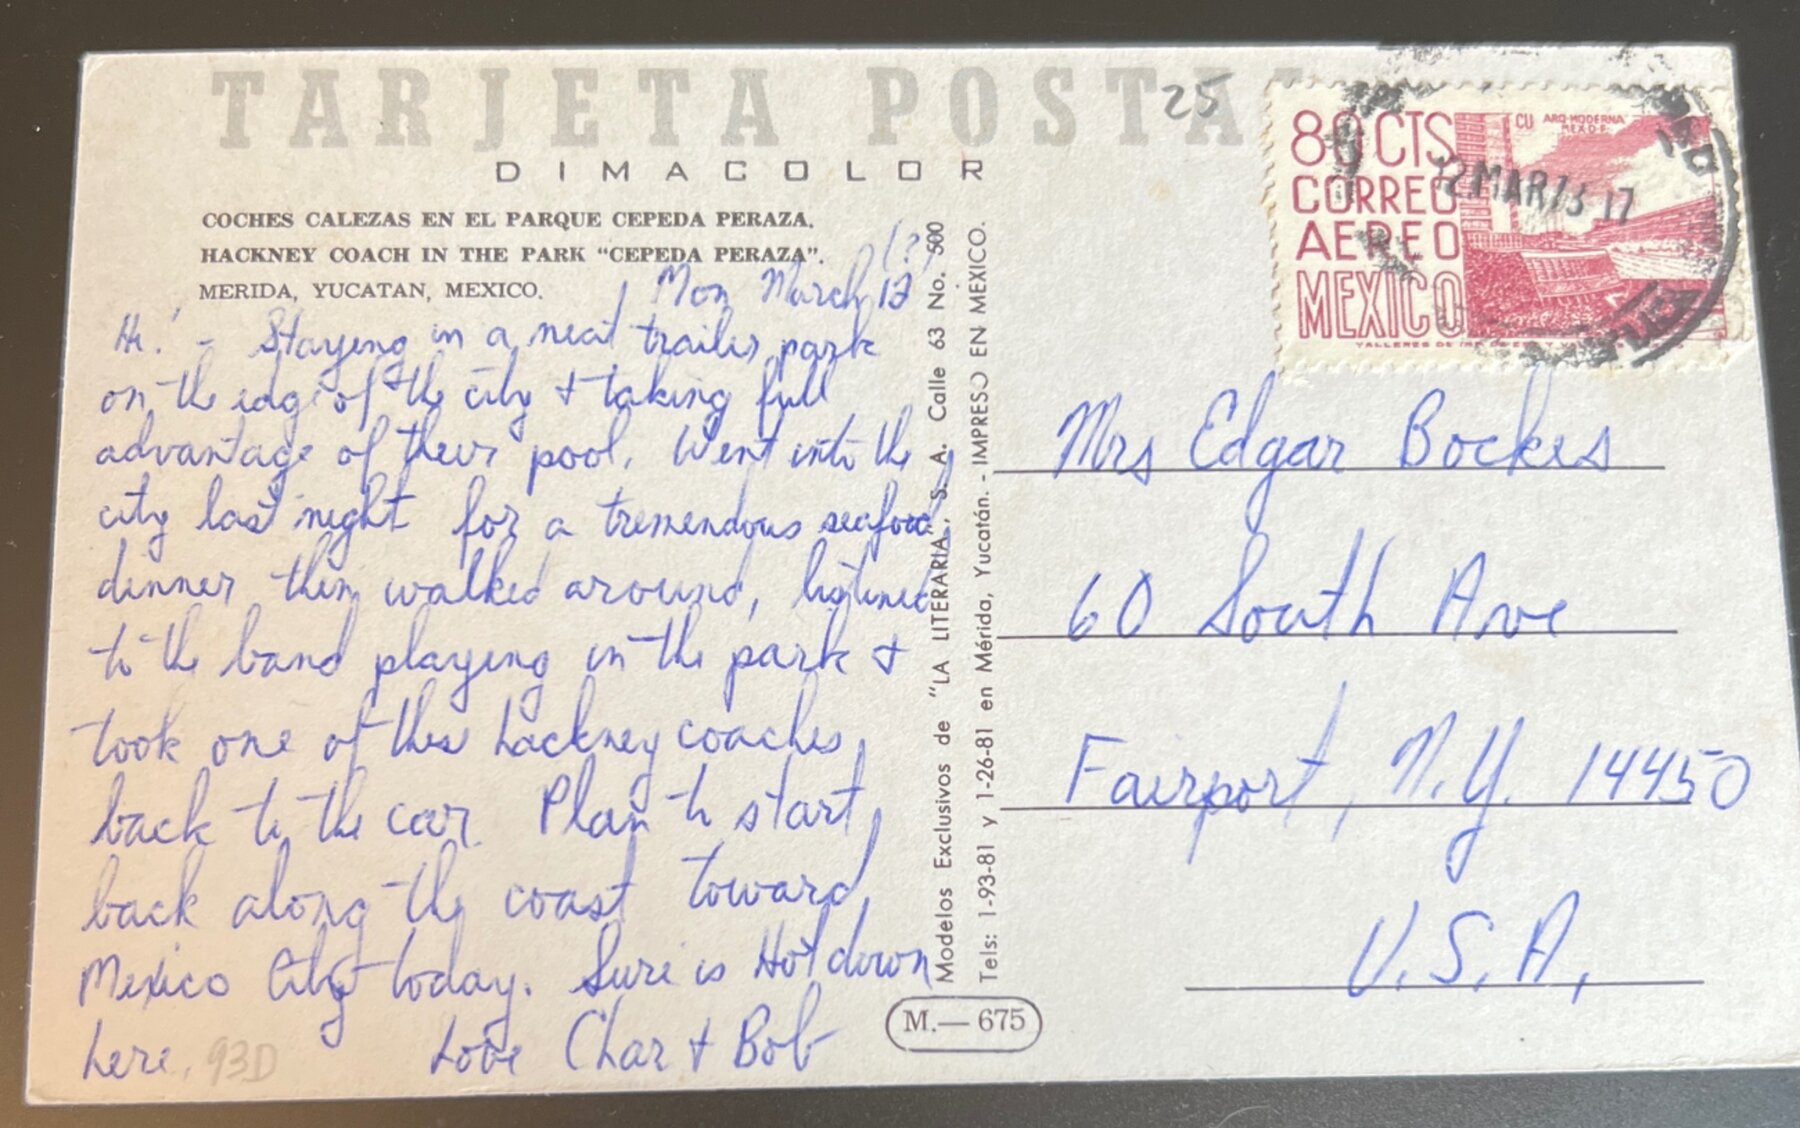 TARJETA POSTA
25
DIMACOLOR
COCHES CALEZAS EN EL PARQUE CEPEDA PERAZA.
HACKNEY COACH IN THE PARK "CEPEDA PERAZA".
MERIDA, YUCATAN, MEXICO.
(?)
Mon March 12
Hi! - Staying in a neat trailer park
on the edge of the city + taking full
advantage of their pool. Went into the
city last night for a tremendous seafood
dinner then walked around, listened
to the band playing in the park +
took one of these hackney coaches
back to the car. Plan to start
back along the coast toward
Mexico City today. Sure is Hot down
here.
Love Char + Bob
93D
Modelos Exclusivos de "LA LITERARIA", S. A. Calle 63 No. 500
Tels: 1-93-81 y 1-26-81 en Mérida, Yucatán. - IMPRESO EN MEXICO.
M.— 675
80 CTS
CORREO
AEREO
MEXICO
CU ARQ·MODERNA
MEX.D.F.
12 MAR 73 17
Mrs Edgar Bockes
60 South Ave
Fairport, N.Y. 14450
U.S.A.